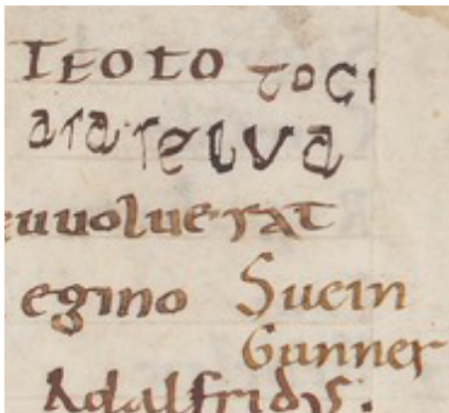 TEOTO TOCI
ara. relva
uuolue.rat
egino Suein
Gunner
Adalfridus.